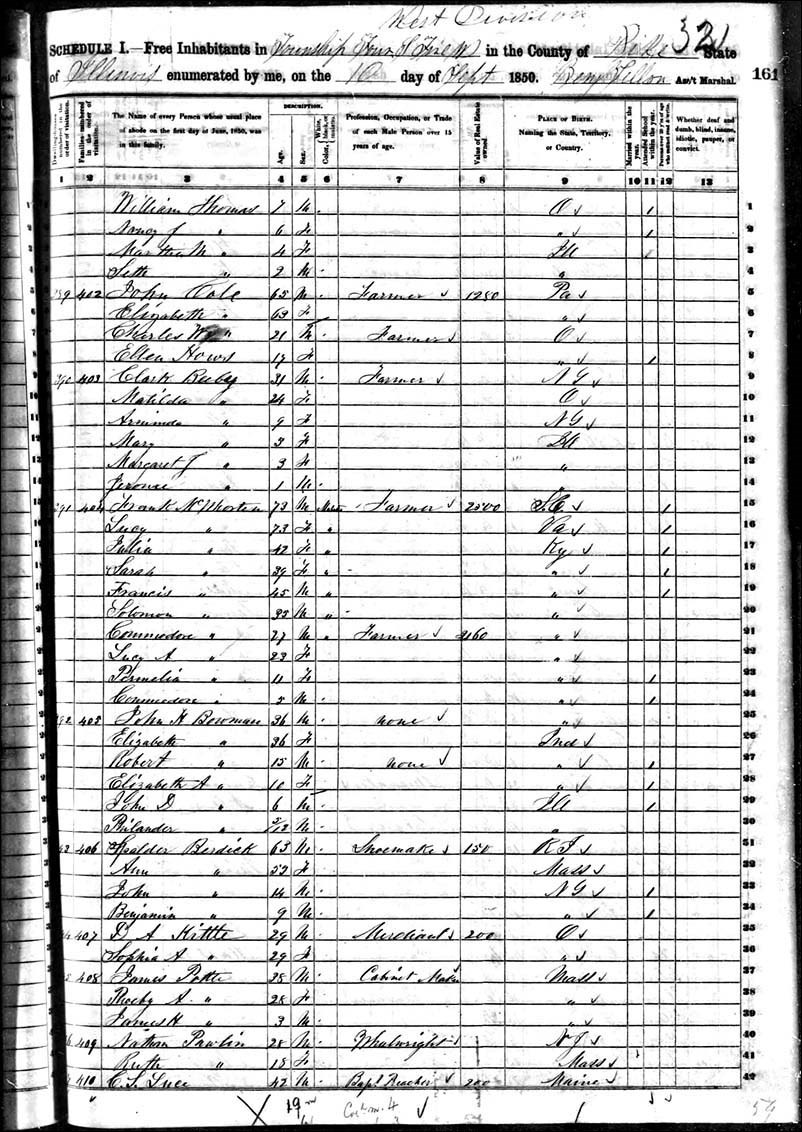 West Division
SCHEDULE I.—Free Inhabitants in Township Four S Five W in the County of Pike State 321
of Illinois enumerated by me, on the 10 day of Sept 1850. Benj Ass't Marshal. 161
DESCRIPTION.
The Name of every Person whose usual place of abode on the first day of June, 1850, was in this family.
Age. Sex. Color
Profession, Occupation, or Trade of each Male Person over 15 years of age.
Value of Real Estate owned
PLACE OF BIRTH. Naming the State, Territory, or Country.
Married within the year.
Attended School within the year.
Whether deaf and dumb, blind, insane, idiotic, pauper, or convict.
1 2 3 4 5 6 7 8 9 10 11 12 13
William Thomas 7 M O 1 1
Nancy J " 6 F " 1 2
Martha M " 4 F Ill 3
Seth " 2 M " 4
389 402 John Cole 65 M Farmer 1280 Pa 5
Elizabeth " 63 F " 6
Charles W " 21 M Farmer O 7
Ellen 19 F " 1 8
390 403 Clark Ruby 31 M Farmer N Y 9
Matilda " 24 F O 10
" 9 F N Y 11
Mary " 3 F Ill 12
Margaret J " 3 F " 13
Jerome " 1 M 14
391 404 Frank McWhorter 73 M Farmer 2500 S.C. 1 15
Lucy " 73 F " Va 1 16
Julia " 42 F " Ky 1 17
Sarah " 39 F " " 1 18
Francis " 45 M " " 1 19
Solomon " 35 M " " 20
Commodore " 27 M " Farmer 2160 " 21
Lucy A " 23 F " 22
Permelia " 11 F " 1 23
Commodore " 3 M " 1 24
392 405 John H Bowman 36 M none " 25
Elizabeth " 36 F Ind 26
Robert " 15 M none " 1 27
Elizabeth A " 10 F " 1 28
John D " 6 M Ill 1 29
Philander " 3/12 M " 30
406 Berdick 63 M Shoemaker 150 R I 31
Ann " 53 F Mass 32
John " 14 M N Y 1 33
Benjamin " 9 M " 1 34
407 D A Kittle 29 M Merchant 200 O 35
Sophia A " 29 F " 36
408 James Potter 28 M Cabinet Maker Mass 37
Phoeby A. " 28 F " 38
James H " 3 M " 39
409 Nathan Pawlin 28 M Whulwright N J 40
Ruth " 18 F Mass 41
410 C. S. Luce 42 M Bapt Preacher 200 Maine 42
19
Col'm. 4